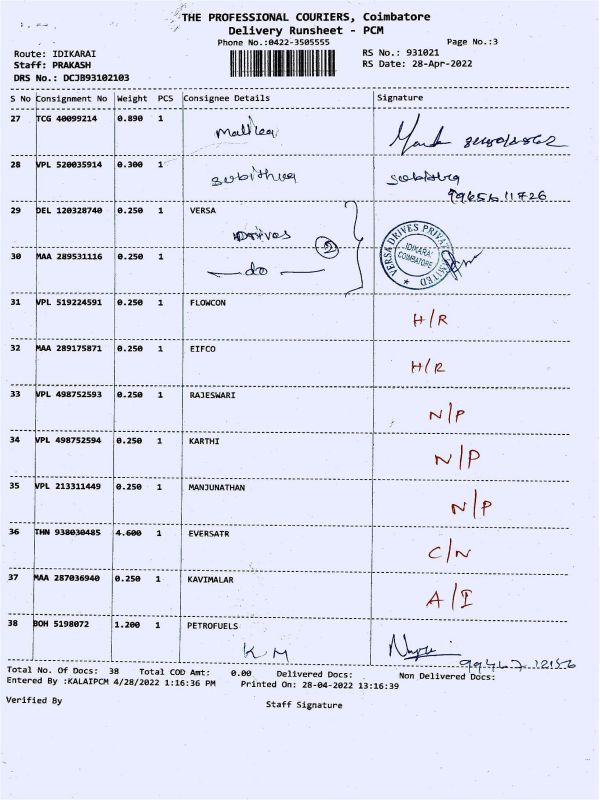 THE PROFESSIONAL COURIERS, Coimbatore
Delivery Runsheet - PCM
Phone No.:0422-3505555 Page No.:3
Route: IDIKARAI RS No.: 931021
Staff: PRAKASH RS Date: 28-Apr-2022
DRS No.: DCJB93102103
S No Consignment No Weight PCS Consignee Details Signature
27 TCG 40099214 0.890 1
28 VPL 520035914 0.300 1
subithra subithra
9965611726
29 DEL 120328740 0.250 1 VERSA
Drives
30 MAA 289531116 0.250 1
— do —
VERSA DRIVES PRIVATE LIMITED
IDIKARAI
COIMBATORE
31 VPL 519224591 0.250 1 FLOWCON
H/R
32 MAA 289175871 0.250 1 EIFCO
H/R
33 VPL 498752593 0.250 1 RAJESWARI
N/P
34 VPL 498752594 0.250 1 KARTHI
N/P
35 VPL 213311449 0.250 1 MANJUNATHAN
N/P
36 THN 938030485 4.600 1 EVERSATR
C/N
37 MAA 287036940 0.250 1 KAVIMALAR
A/I
38 BOH 5198072 1.200 1 PETROFUELS
K M
Total No. Of Docs: 38 Total COD Amt: 0.00 Delivered Docs: Non Delivered Docs:
Entered By :KALAIPCM 4/28/2022 1:16:36 PM Printed On: 28-04-2022 13:16:39
Verified By Staff Signature